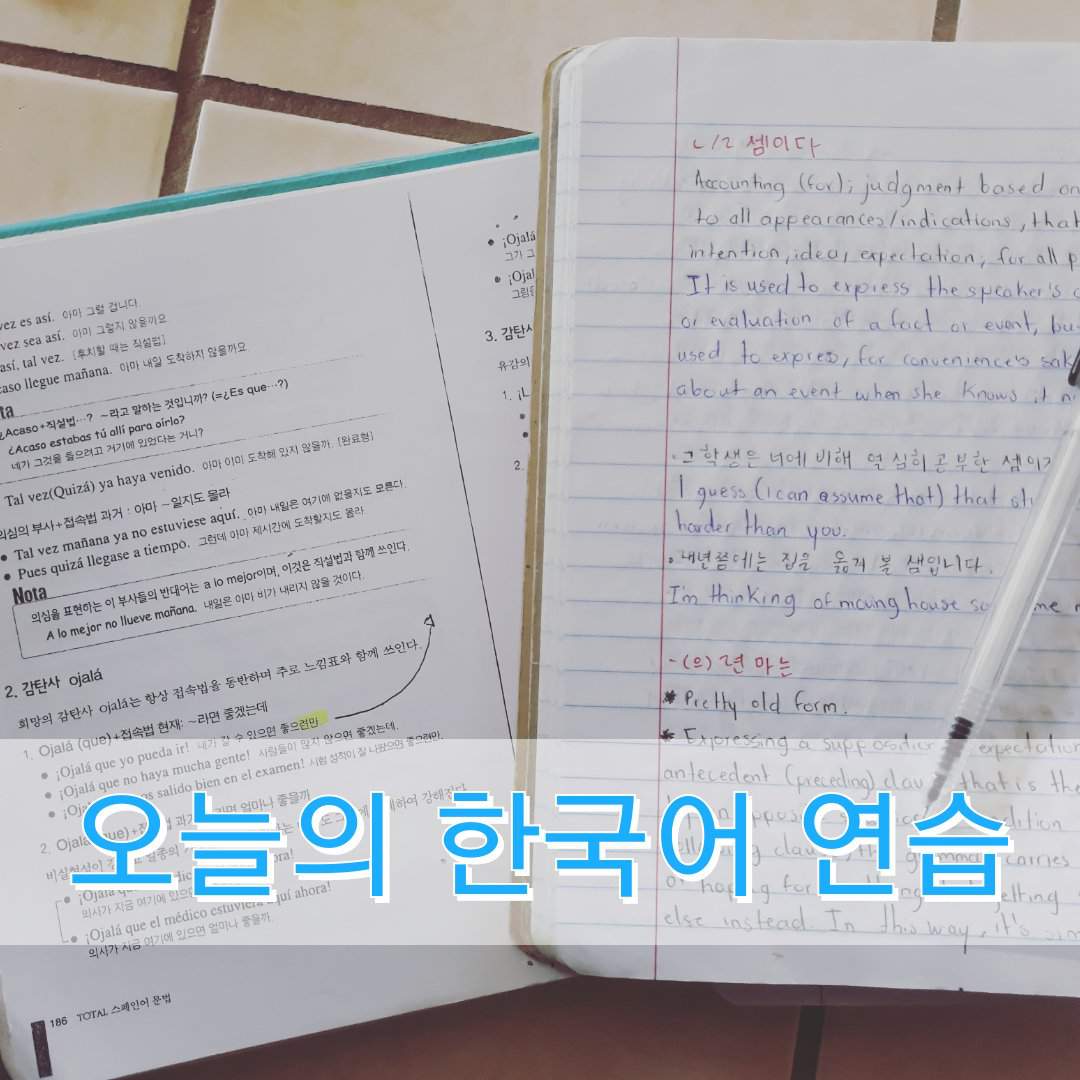 vez es así. 아마 그럴 겁니다.
vez sea así. 아마 그렇지 않을까요
así, tal vez. [후치할 때는 직설법]
caso llegue mañana. 아마 내일 도착하지 않을까요
ta
¿Acaso+직설법…? ~라고 말하는 것입니까? (=¿Es que…?)
¿Acaso estabas tú allí para oírlo?
네가 그것을 들으려고 거기에 있었다는 거니?
Tal vez(Quizá) ya haya venido. 아마 이미 도착해 있지 않을까. [완료형]
의심의 부사+접속법 과거 : 아마 ~일지도 몰라
• Tal vez mañana ya no estuviese aquí. 아마 내일은 여기에 없을지도 모른다.
• Pues quizá llegase a tiempo. 그런데 아마 제시간에 도착할지도 몰라
Nota
의심을 표현하는 이 부사들의 반대어는 a lo mejor이며, 이것은 직설법과 함께 쓰인다.
A lo mejor no llueve mañana. 내일은 아마 비가 내리지 않을 것이다.
2. 감탄사 ojalá
희망의 감탄사 ojalá는 항상 접속법을 동반하며 주로 느낌표와 함께 쓰인다.
1. Ojalá (que)+접속법 현재: ~라면 좋겠는데
• ¡Ojalá que yo pueda ir! 내가 갈 수 있으면 좋으련만
• ¡Ojalá que no haya mucha gente! 사람들이 많지 않으면 좋겠는데.
• ¡Ojalá salido bien en el examen! 시험 성적이 잘 나왔으면 좋으련만.
2. Ojalá
• ¡Ojalá
의사가 지금 여기에 있으면
• ¡Ojalá que el médico estuviera aquí ahora!
의사가 지금 여기에 있으면 얼마나 좋을까.
186 TOTAL 스페인어 문법
• ¡Ojalá
그가 그
• ¡Ojal
3. 감탄사
유감의
1. ¡L
2.
ㄴ/ㄹ 셈이다
Accounting (for); judgment based on
to all appearances/indications, that
intention, idea, expectation; for all p
It is used to express the speaker's
or evaluation of a fact or event, bu
used to express, for convenience's sak
about an event when she knows it n
• 그 학생은 너에 비해 열심히 공부한 셈이
I guess (I can assume that) that
harder than you.
• 내년쯤에는 집을 옮겨 볼 셈입니다.
I'm thinking of moving house so me
-(으)련마는
* Pretty old form.
* Expressing a supposition expectation
antecedent (preceding) clau that is the
dition
carries
or hoping for getting
else instead. In this way, it's
오늘의 한국어 연습